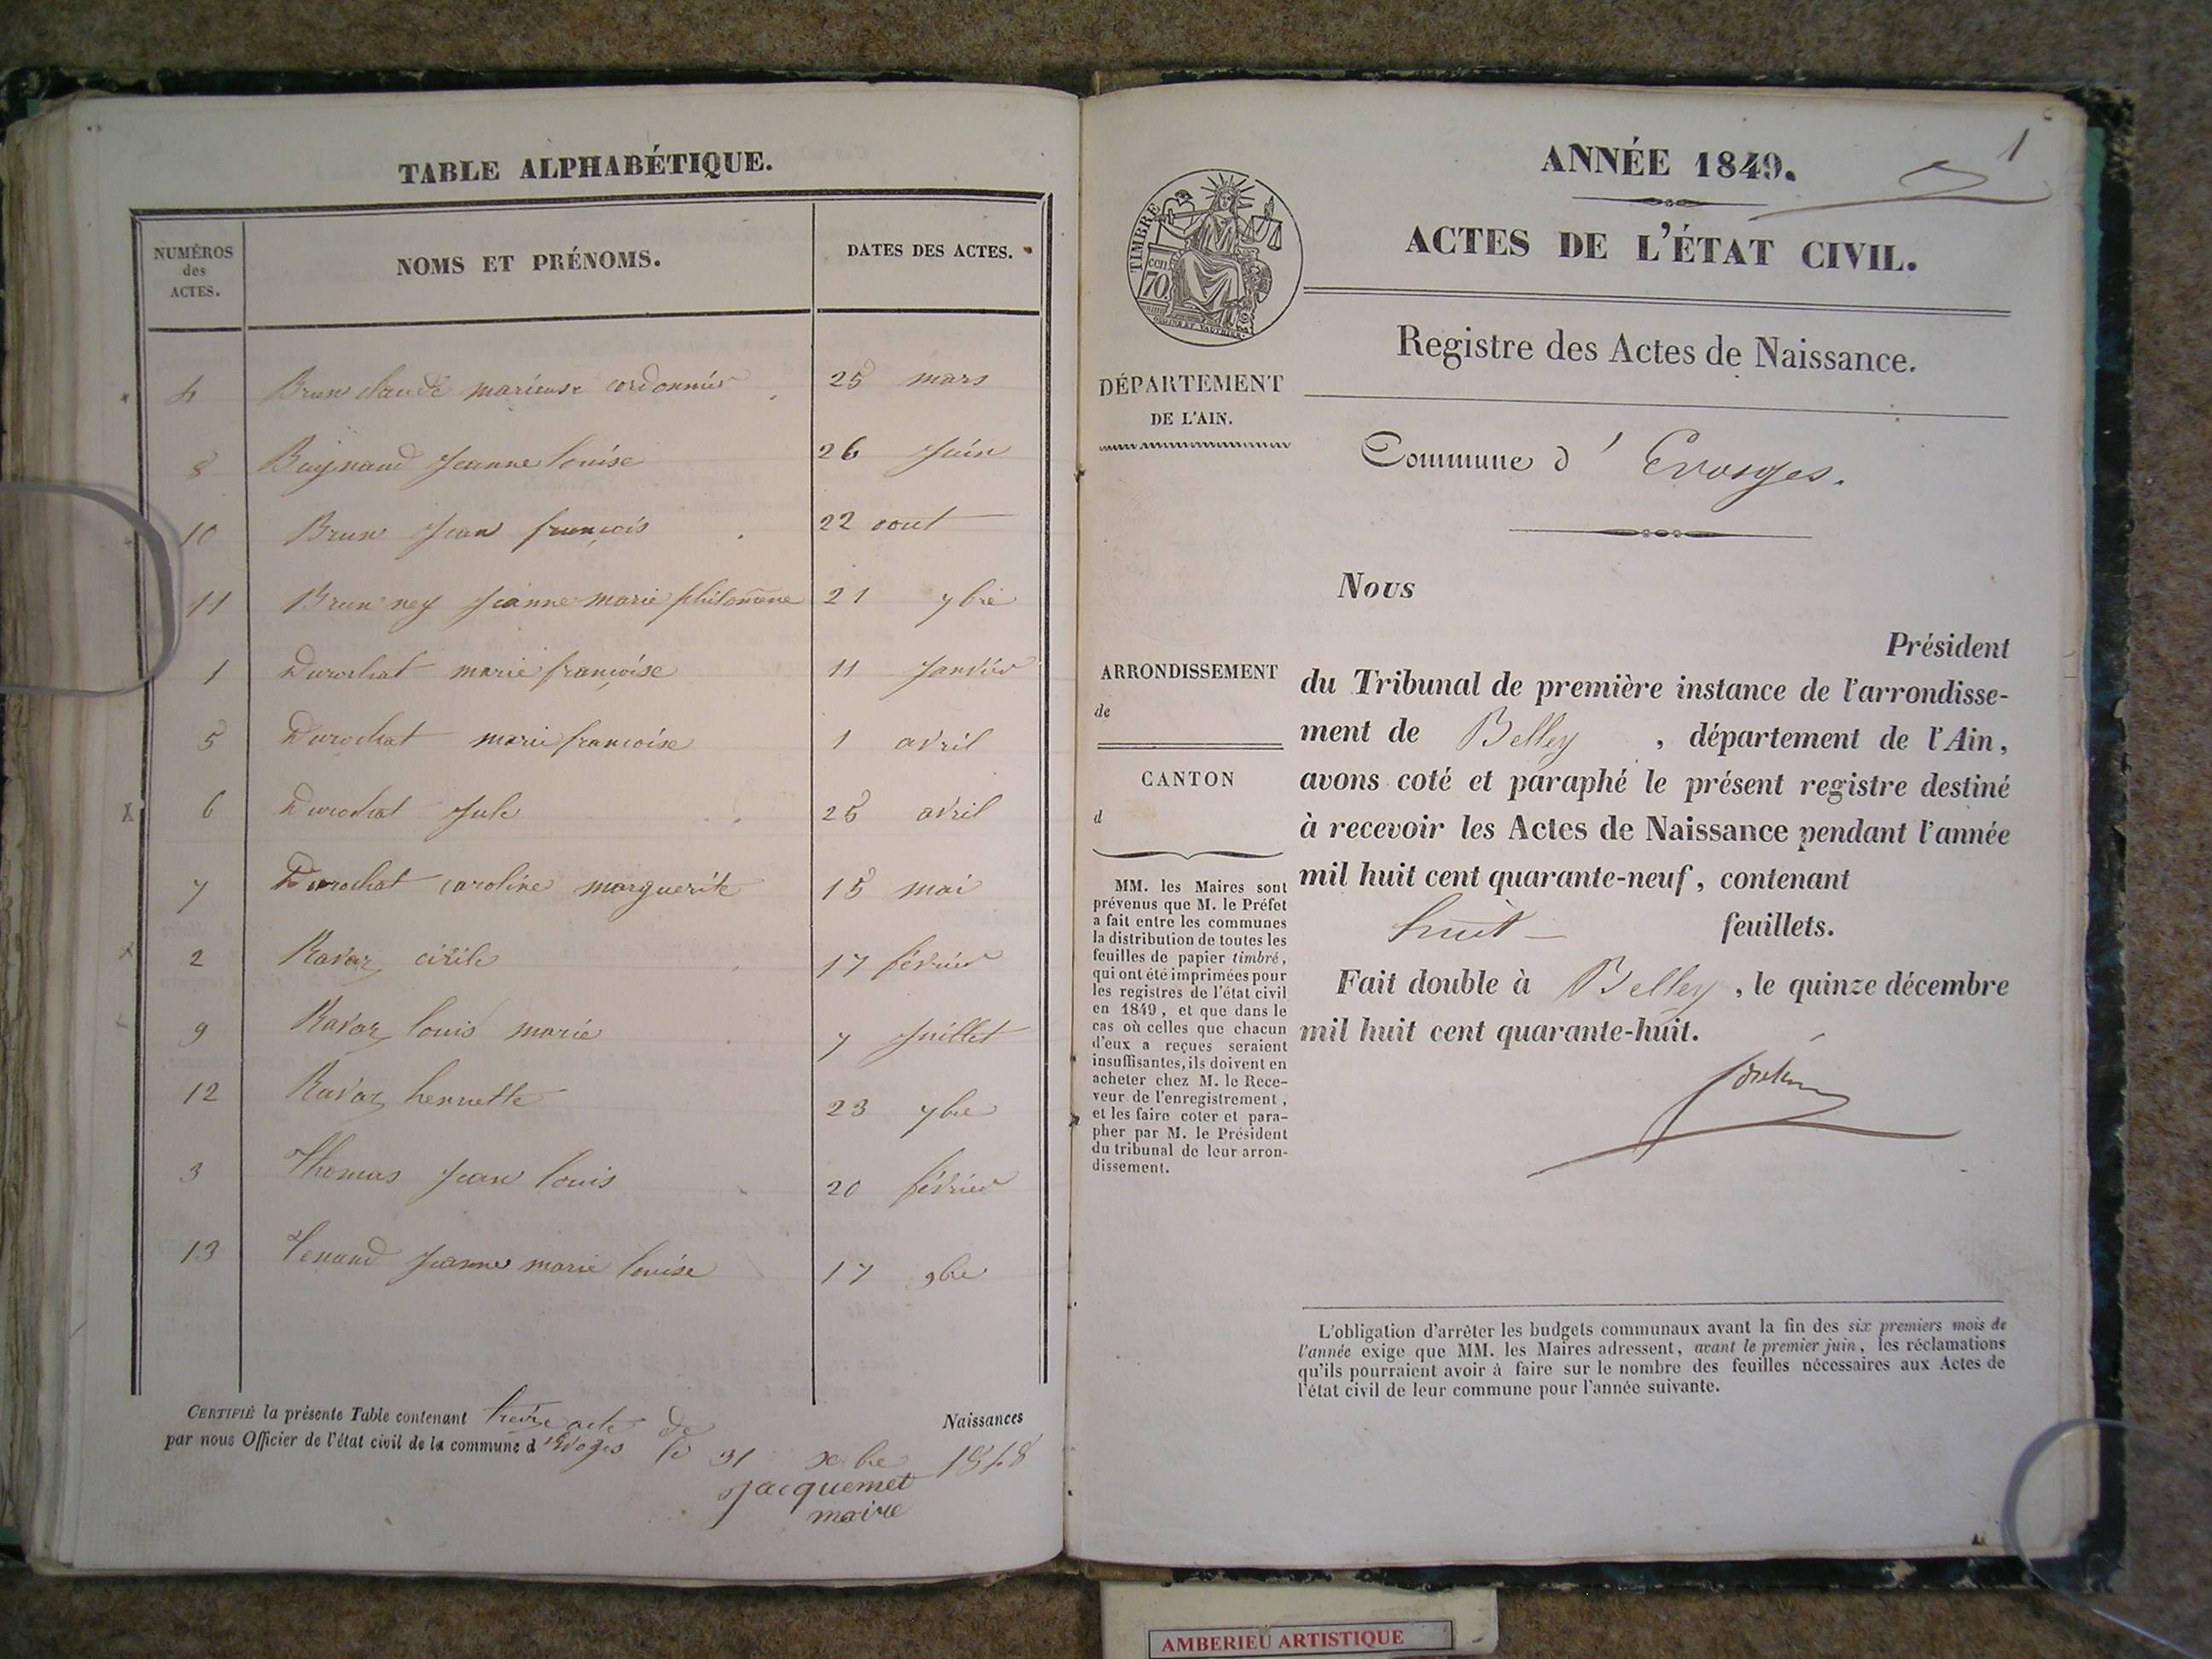 TABLE ALPHABÉTIQUE.
NUMÉROS des ACTES.
NOMS ET PRÉNOMS.
DATES DES ACTES.
4 Brun claude cordonnier 25 mars
8 Buynand Jeanne louise 26 Juin
10 Brun Jean françois 22 aout
11 Brun ney Jeanne marie philomene 21 7bre
1 Durochat marie françoise 11 Janvier
5 Durochat marie francoise 1 avril
6 Durochat Jule 25 avril
7 Durochat caroline marguerite 15 mai
2 Ravaz cirile 17 février
9 Ravaz louis marie 7 Juillet
12 Ravaz henriette 23 7bre
3 Thomas Jean louis 20 février
13 Tenand Jeanne marie louise 17 9bre
CERTIFIÉ la présente Table contenant treize acte de Naissances
par nous Officier de l'état civil de la commune d'Evoges le 31 xbre 1848
Jacquemet
maire
1
ANNÉE 1849.
ACTES DE L'ÉTAT CIVIL.
TIMBRE
cen.
70
Registre des Actes de Naissance.
DÉPARTEMENT
DE L'AIN.
Commune d' Evosges.
Nous
Président
ARRONDISSEMENT
de
CANTON
d
du Tribunal de première instance de l'arrondisse-
ment de Belley , département de l'Ain,
avons coté et paraphé le présent registre destiné
à recevoir les Actes de Naissance pendant l'année
mil huit cent quarante-neuf, contenant
huit feuillets.
Fait double à Belley , le quinze décembre
mil huit cent quarante-huit.
MM. les Maires sont
prévenus que M. le Préfet
a fait entre les communes
la distribution de toutes les
feuilles de papier timbré,
qui ont été imprimées pour
les registres de l'état civil
en 1849, et que dans le
cas où celles que chacun
d'eux a reçues seraient
insuffisantes, ils doivent en
acheter chez M. le Rece-
veur de l'enregistrement,
et les faire coter et para-
pher par M. le Président
du tribunal de leur arron-
dissement.
L'obligation d'arrêter les budgets communaux avant la fin des six premiers mois de
l'année exige que MM. les Maires adressent, avant le premier juin, les réclamations
qu'ils pourraient avoir à faire sur le nombre des feuilles nécessaires aux Actes de
l'état civil de leur commune pour l'année suivante.
AMBERIEU ARTISTIQUE